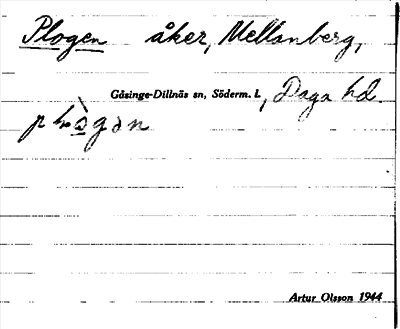 Plogen åker, Mellanberg,
Gåsinge-Dillnäs sn, Söderm. l., Daga hd.
Artur Olsson 1944